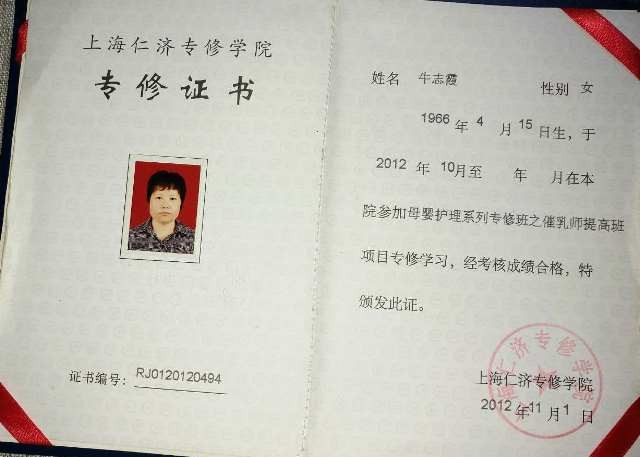 上海仁济专修学院
专修证书
证书编号：RJ0120120494
姓名 牛志霞 性别 女
1966年 4 月 15日生，于
2012 年 10月至 年 月在本
院参加母婴护理系列专修班之催乳师提高班
项目专修学习，经考核成绩合格，特
颁发此证。
上海仁济专修学院
上海仁济专修学院
2012年11月1日